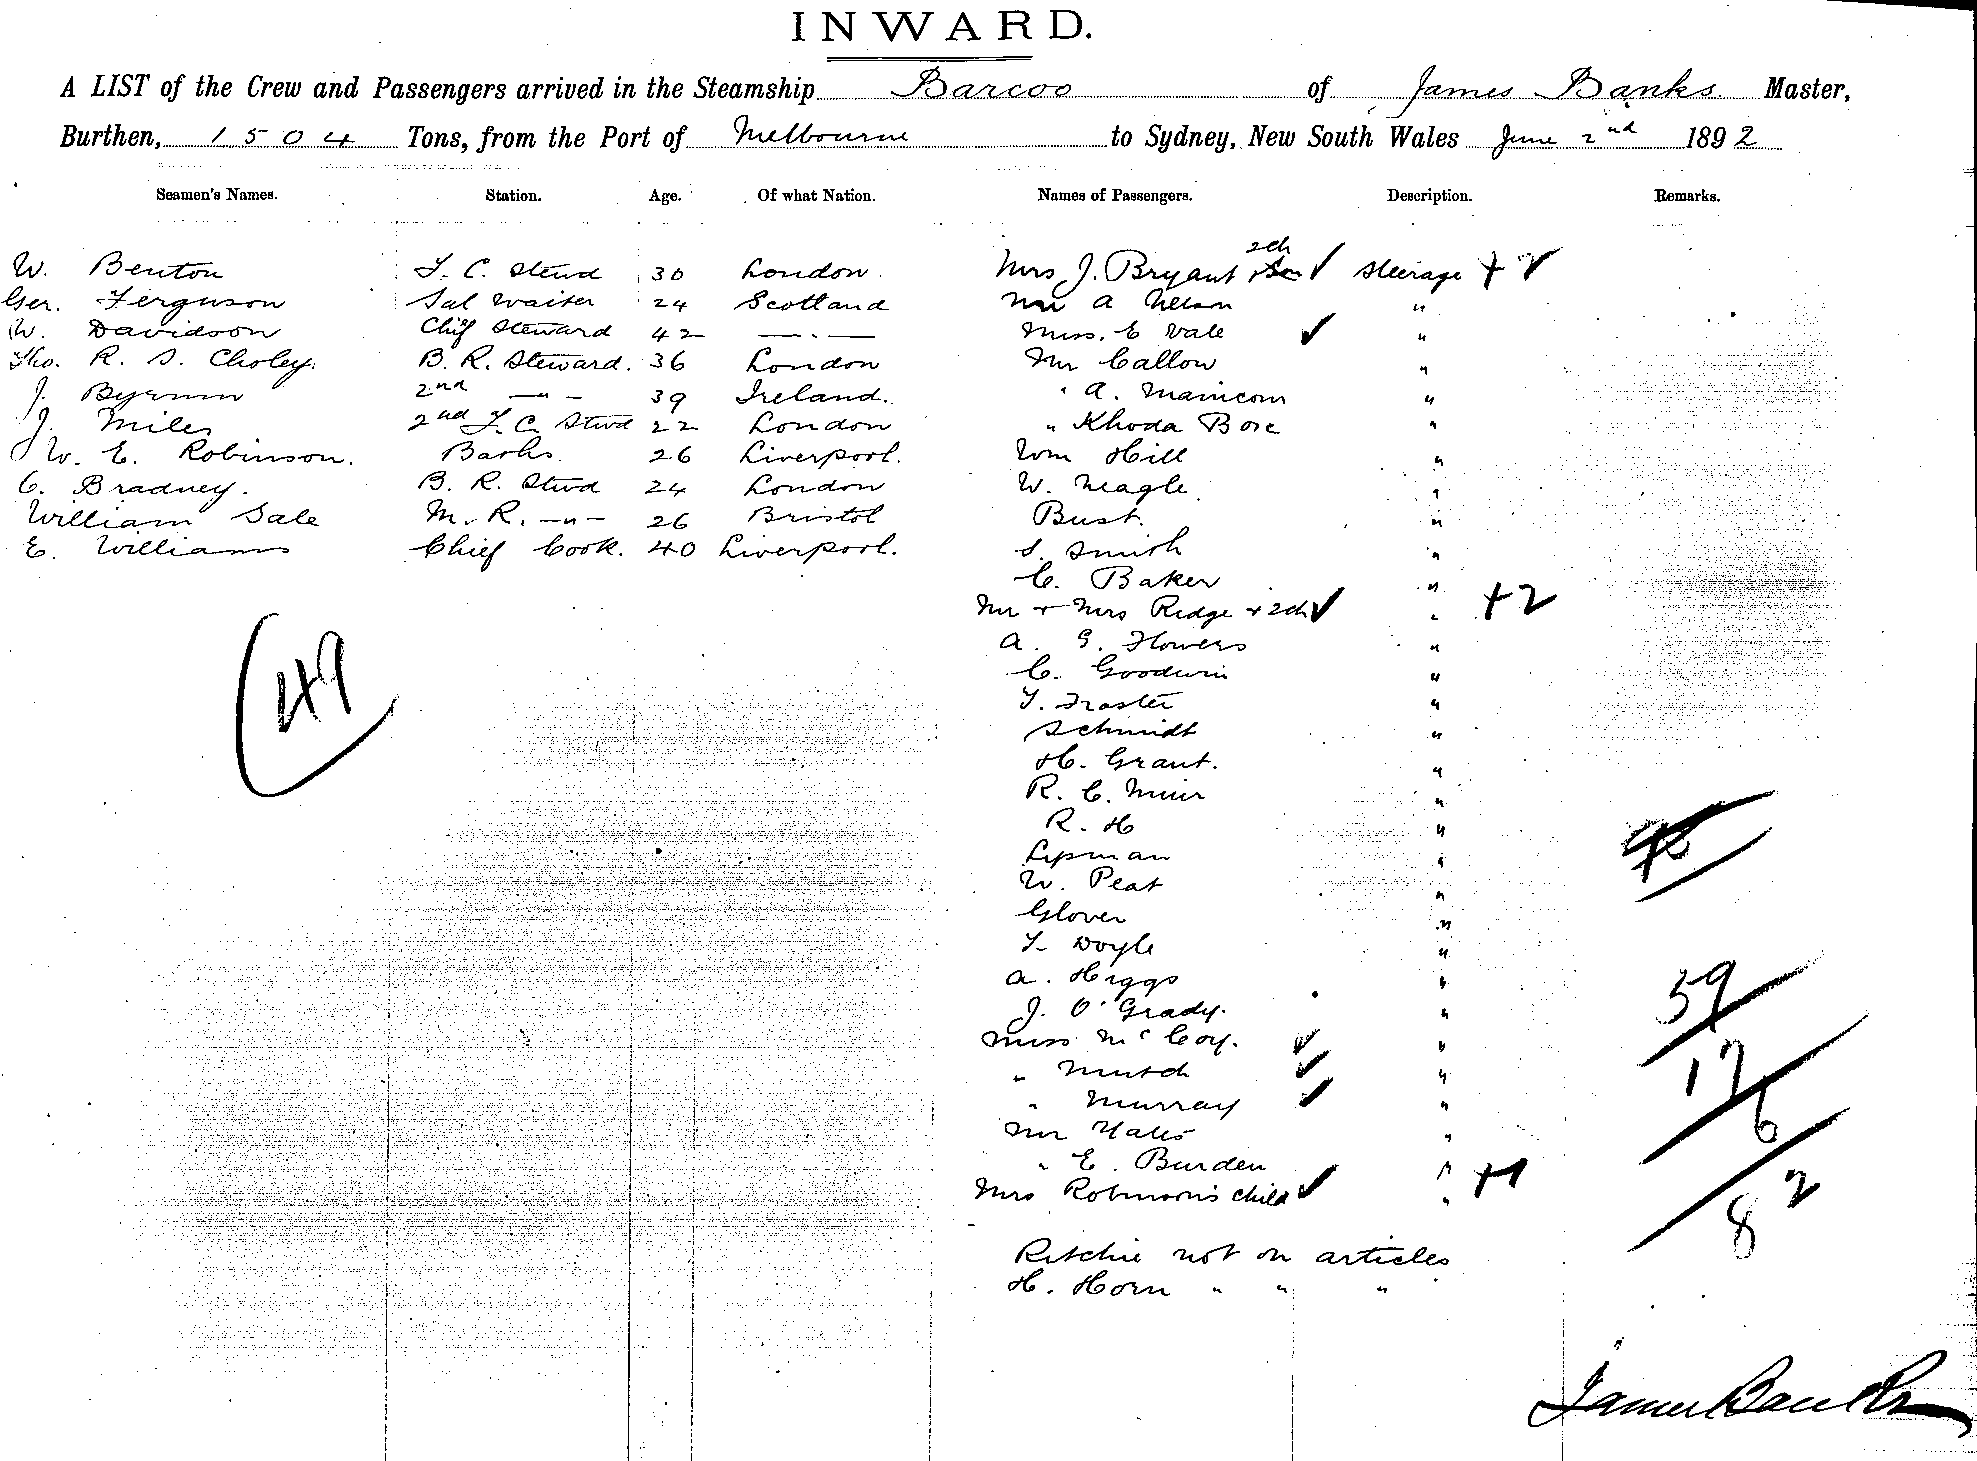 INWARD.
A LIST of the Crew and Passengers arrived in the Steamship Barcoo of James Banks Master,
Burthen, 1504 Tons, from the Port of Melbourne to Sydney, New South Wales June 2nd 1892
Seamen's Names. Station. Age. Of what Nation. Names of Passengers. Description. Remarks.
W. Benton F. C. Stewd 30 London
Ger. Ferguson Sal Waiter 24 Scotland
W. Davidson Chief Steward 42 — " —
Tho. R. S. Choley. B. R. Steward. 36 London
J. Byrnm 2nd — " — 39 Ireland.
J. Miles 2nd F. C. Stwd 22 London
W. E. Robinson. Barks. 26 Liverpool.
C. Bradney. B. R. Stwd 24 London
William Sale M. R. — " — 26 Bristol
E. Williams Chief Cook. 40 Liverpool.
(49
Mrs J. Bryant 2ch ✓ Steerage +2 ✓
Mr A Nelson "
Miss. E Vale ✓ "
Mr Callow "
" A. Mainicom "
" Khoda Box "
Wm Hill "
W. Neagle "
Bust. "
S. Smith "
C. Baker "
Mr + Mrs Ridge + 2ch ✓ " +2
A. G. Flowers "
C. Goodwin "
T. Fraster "
Schmidt "
H. Grant. "
R. C. Muir "
R. H "
Lipman "
W. Peat "
Glover "
T. Doyle "
A. Higgs "
J. O'Grady. "
Miss McCoy. ✓ "
" Mutch ✓ "
" Murray ✓ "
Mr Yates "
" E. Burden "
Mrs Robinson's child ✓ " +1
Ritchie not on articles
H. Horn " " "
59
17
6
8 2
James Banks